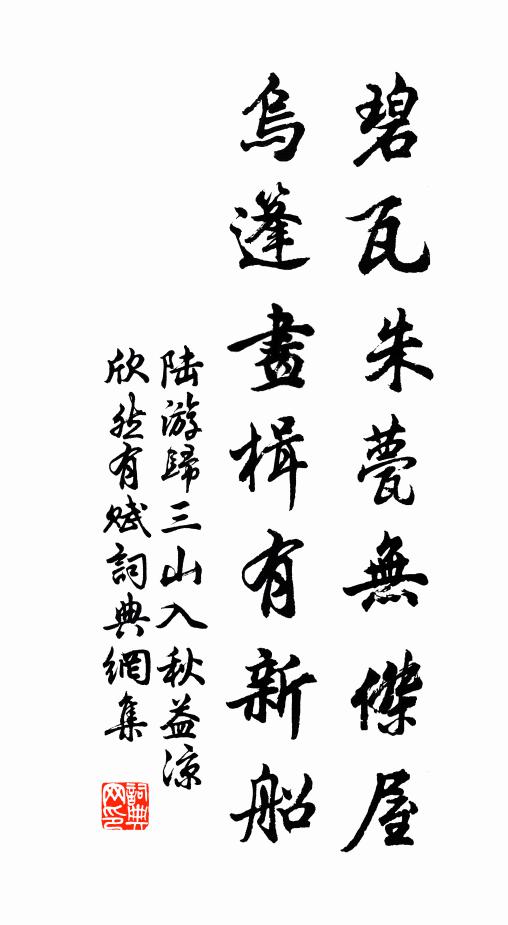 碧瓦朱甍無傑屋
烏篷畫楫有新船
陆游歸三山入秋益凉
欣然有赋詞典網集
詞典网印